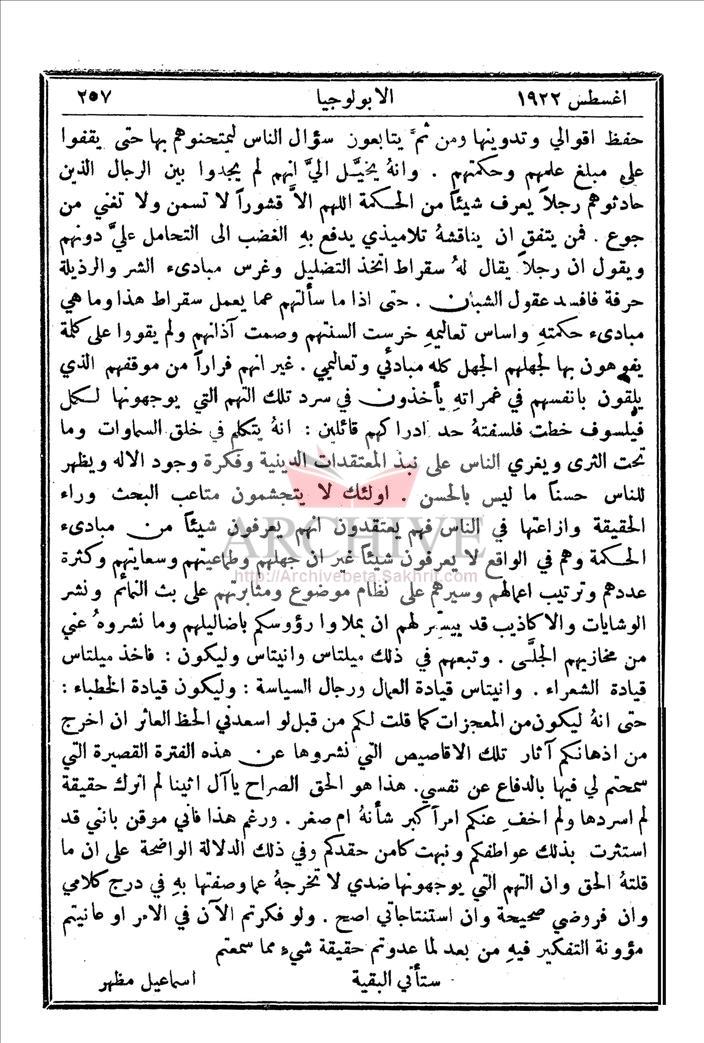 اغسطس ١٩٢٢ الابولوجيا ٢٥٧
حفظ اقوالي وتدوينها ومن ثمَّ يتابعون سؤال الناس ليمتحنوهم بها حتى يقفوا
على مبلغ علمهم وحكمتهم . وانهُ يخيَّل اليَّ انهم لم يجدوا بين الرجال الذين
حادثوهم رجلاً يعرف شيئاً من الحكمة اللهم الاَّ قشوراً لا تسمن ولا تغني من
جوع . فمن يتفق ان يناقشهُ تلاميذي يدفع بهِ الغضب الى التحامل عليَّ دونهم
ويقول ان رجلاً يقال لهُ سقراط اتخذ التضليل وغرس مبادىء الشر والرذيلة
حرفة فافسد عقول الشبان . حتى اذا ما سألتهم عما يعمل سقراط هذا وما هي
مبادىء حكمتهِ واساس تعاليمهِ خرست السنتهم وصمت آذانهم ولم يقووا على كلمة
يفوهون بها لجهلهم الجهل كله مبادئي وتعاليمي . غير انهم فراراً من موقفهم الذي
يلقون بانفسهم في غمراتهِ يأخذون في سرد تلك التهم التي يوجهونها لكل
فيلسوف خطت فلسفتهُ حد ادراكهم قائلين : انهُ يتكلم في خلق السماوات وما
تحت الثرى ويغري الناس على نبذ المعتقدات الدينية وفكرة وجود الاله ويظهر
للناس حسناً ما ليس بالحسن . اولئك لا يتجشمون متاعب البحث وراء
الحقيقة وازاعتها في الناس فهم يعتقدون انهم يعرفون شيئاً من مبادىء
الحكمة وهم في الواقع لا يعرفون شيئاً غير ان جهلهم وطماعيتهم وسعايتهم وكثرة
عددهم وترتيب اعمالهم وسيرهم على نظام موضوع ومثابرتهم على بث النمائم ونشر
الوشايات والاكاذيب قد ييسّر لهم ان يملاوا رؤوسكم باضاليلهم وما نشروهُ عني
من مخازيهم الجلَّى . وتبعهم في ذلك ميلتاس وانيتاس وليكون : فاخذ ميلتاس
قيادة الشعراء . وانيتاس قيادة العمال ورجال السياسة : وليكون قيادة الخطباء :
حتى انهُ ليكون من المعجزات كما قلت لكم من قبل لو اسعدني الحظ العاثر ان اخرج
من اذهانكم آثار تلك الاقاصيص التي نشروها عن هذه الفترة القصيرة التي
سمحتم لي فيها بالدفاع عن نفسي. هذا هو الحق الصراح يا آل اثينا لم اترك حقيقة
لم اسردها ولم اخفِ عنكم امراً كبر شأنهُ ام صغر . ورغم هذا فاني موقن بانني قد
استثرت بذلك عواطفكم ونبهت كامن حقدكم وفي ذلك الدلالة الواضحة على ان ما
قلتهُ الحق وان التهم التي يوجهونها ضدي لا تخرجهُ عما وصفتها بهِ في درج كلامي
وان فروضي صحيحة وان استنتاجاتي اصح . ولو فكرتم الآن في الامر او عانيتم
مؤونة التفكير فيهِ من بعد لما عدوتم حقيقة شيءٍ مما سمعتم
ستأتي البقية اسماعيل مظهر
ARCHIVE
http://Archivebeta.Sakhrit.com